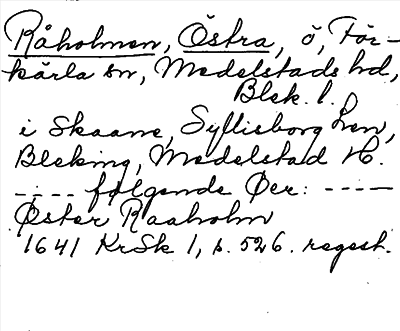 Råholmen, Östra, ö, För-
kärla sn, Medelstads hd,
Blek. l.
i Skaane, Sylliisborg Len,
Bleking, Medelstad H.
----- følgende Øer: -----
Øster Raaholm
1641 KrSk 1, s. 526. regest.